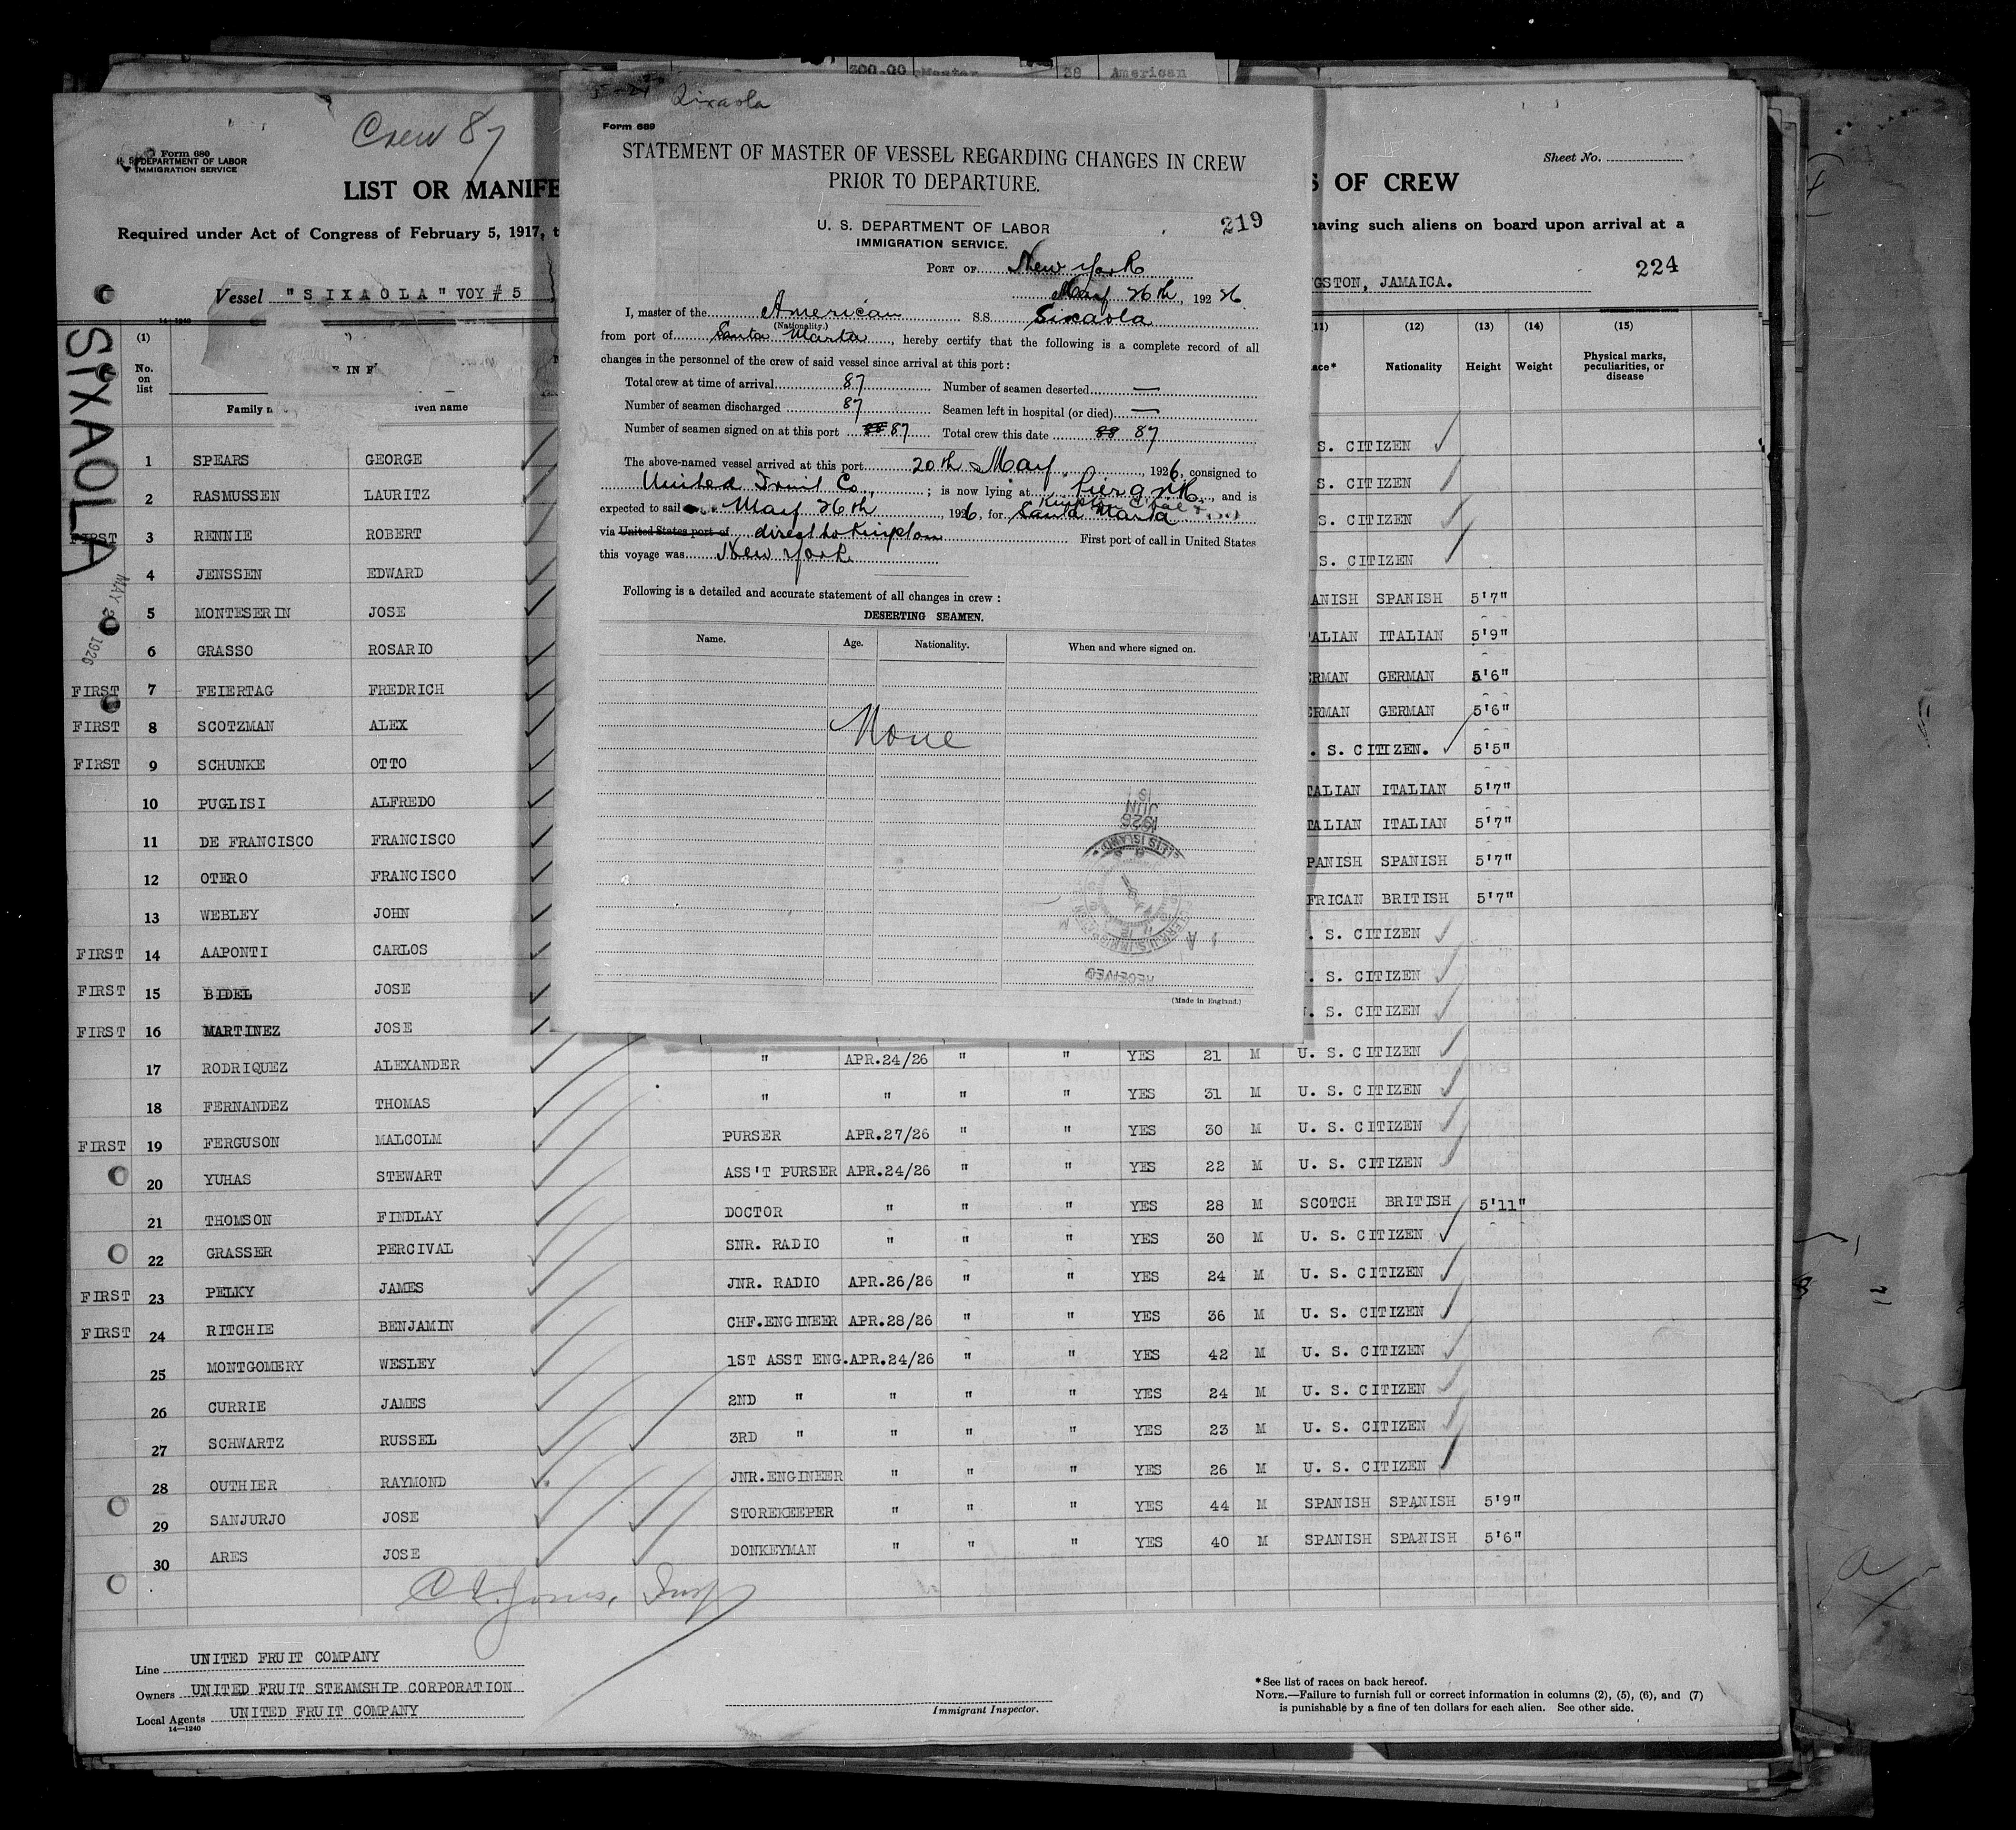 300.00 Master 38 American
5-21 Sixaola
Form 689
STATEMENT OF MASTER OF VESSEL REGARDING CHANGES IN CREW
PRIOR TO DEPARTURE.
U. S. DEPARTMENT OF LABOR
IMMIGRATION SERVICE.
219
PORT OF New York
May 26th, 1926
I, master of the American S.S. Sixaola
(Nationality.)
from port of Santa Marta, hereby certify that the following is a complete record of all
changes in the personnel of the crew of said vessel since arrival at this port:
Total crew at time of arrival 87 Number of seamen deserted —
Number of seamen discharged 87 Seamen left in hospital (or died) —
Number of seamen signed on at this port 88 87 Total crew this date 88 87
The above-named vessel arrived at this port 20th May, 1926, consigned to
United Fruit Co.; is now lying at Pier 9 NR, and is
expected to sail May 26th, 1926, for Santa Marta
via United States port of direct to Kingston First port of call in United States
this voyage was New York
Following is a detailed and accurate statement of all changes in crew:
DESERTING SEAMEN.
Name. Age. Nationality. When and where signed on.
None
JUN
1926
ELLIS ISLAND
RECEIVED
(Made in England.)
Crew 87
Form 680
U. S. DEPARTMENT OF LABOR
IMMIGRATION SERVICE
Sheet No.
LIST OR MANIFE S OF CREW
Required under Act of Congress of February 5, 1917, t having such aliens on board upon arrival at a
224
Vessel "SIXAOLA" VOY # 5 GSTON, JAMAICA.
14-1240
SIXAOLA
MAY 20 1926
(1) (11) (12) (13) (14) (15)
No. on list IN F Family n iven name ace* Nationality Height Weight Physical marks, peculiarities, or disease
1 SPEARS GEORGE S. CITIZEN
2 RASMUSSEN LAURITZ S. CITIZEN
FIRST 3 RENNIE ROBERT S. CITIZEN
4 JENSSEN EDWARD S. CITIZEN
5 MONTESERIN JOSE ANISH SPANISH 5'7"
6 GRASSO ROSARIO ALIAN ITALIAN 5'9"
FIRST 7 FEIERTAG FREDRICH RMAN GERMAN 5'6"
FIRST 8 SCOTZMAN ALEX RMAN GERMAN 5'6"
FIRST 9 SCHUNKE OTTO . S. CITIZEN. 5'5"
10 PUGLISI ALFREDO TALIAN ITALIAN 5'7"
11 DE FRANCISCO FRANCISCO TALIAN ITALIAN 5'7"
12 OTERO FRANCISCO PANISH SPANISH 5'7"
13 WEBLEY JOHN FRICAN BRITISH 5'7"
FIRST 14 AAPONTI CARLOS . S. CITIZEN
FIRST 15 BIDEL JOSE . S. CITIZEN
FIRST 16 MARTINEZ JOSE . S. CITIZEN
17 RODRIQUEZ ALEXANDER " APR.24/26 " " YES 21 M U. S. CITIZEN
18 FERNANDEZ THOMAS " " " " YES 31 M U. S. CITIZEN
FIRST 19 FERGUSON MALCOLM PURSER APR.27/26 " " YES 30 M U. S. CITIZEN
20 YUHAS STEWART ASS'T PURSER APR.24/26 " " YES 22 M U. S. CITIZEN
21 THOMSON FINDLAY DOCTOR " " " YES 28 M SCOTCH BRITISH 5'11"
22 GRASSER PERCIVAL SNR. RADIO " " " YES 30 M U. S. CITIZEN
FIRST 23 PELKY JAMES JNR. RADIO APR.26/26 " " YES 24 M U. S. CITIZEN
FIRST 24 RITCHIE BENJAMIN CHF.ENGINEER APR.28/26 " " YES 36 M U. S. CITIZEN
25 MONTGOMERY WESLEY 1ST ASST ENG. APR.24/26 " " YES 42 M U. S. CITIZEN
26 CURRIE JAMES 2ND " " " " YES 24 M U. S. CITIZEN
27 SCHWARTZ RUSSEL 3RD " " " " YES 23 M U. S. CITIZEN
28 OUTHIER RAYMOND JNR.ENGINEER " " " YES 26 M U. S. CITIZEN
29 SANJURJO JOSE STOREKEEPER " " " YES 44 M SPANISH SPANISH 5'9"
30 ARES JOSE DONKEYMAN " " " YES 40 M SPANISH SPANISH 5'6"
Jones, Insp
Line UNITED FRUIT COMPANY
Owners UNITED FRUIT STEAMSHIP CORPORATION
Local Agents UNITED FRUIT COMPANY
14-1240
Immigrant Inspector.
*See list of races on back hereof.
NOTE.—Failure to furnish full or correct information in columns (2), (5), (6), and (7)
is punishable by a fine of ten dollars for each alien. See other side.